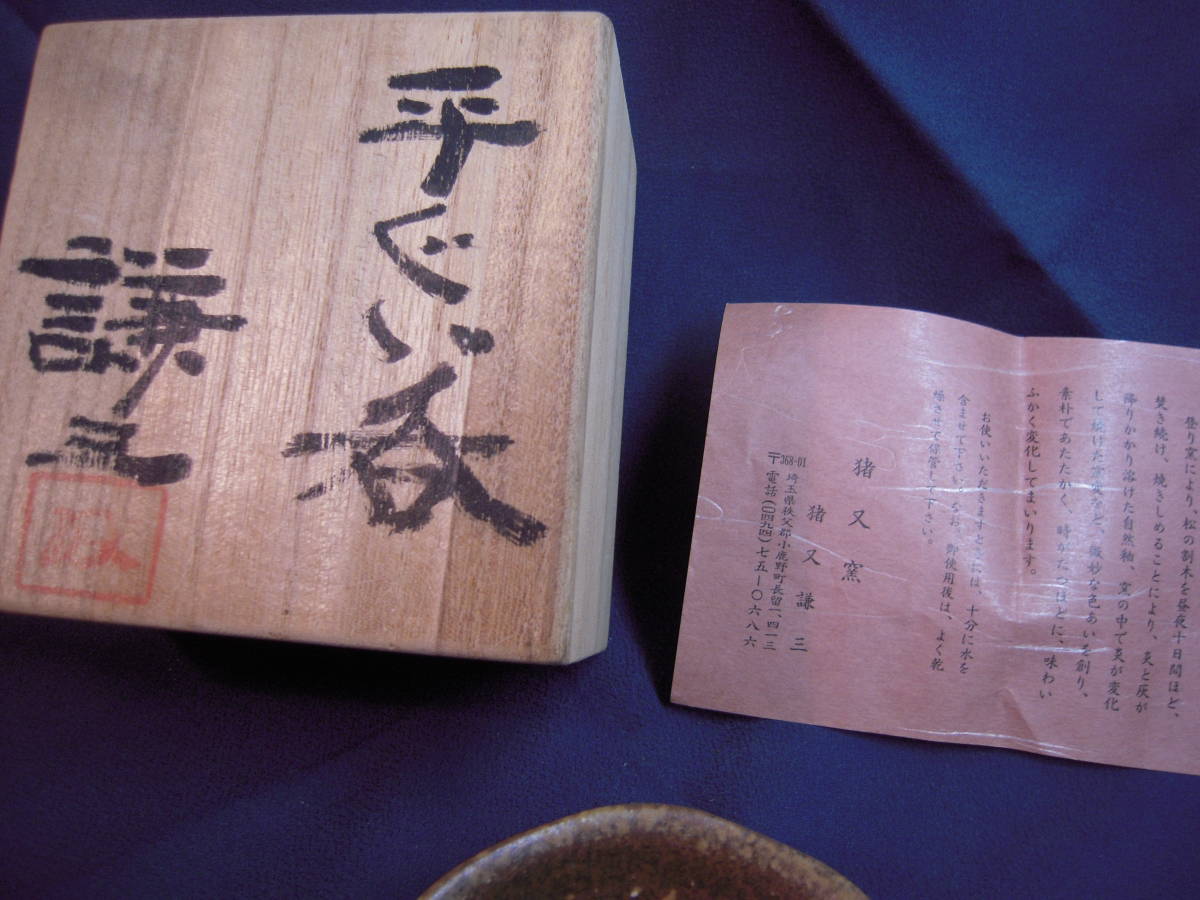 平ぐい呑
謙三
登り窯により、松の割木を昼夜十日間ほど、
焚き続け、焼きしめることにより、炎と灰が
降りかかり溶けた自然釉、窯の中で炎が変化
して焼けた窯変など、微妙な色あいを創り、
素朴であたたかく、時がたつほどに、味わい
ふかく変化してまいります。
お使いいただきますときには、十分に水を
含ませて下さい。なお、御使用後は、よく乾
燥させて保管して下さい。
猪又窯
猪又謙三
〒368-01 埼玉県秩父郡小鹿野町長留一、四一三
電話(〇四九四)七五ー〇六八六